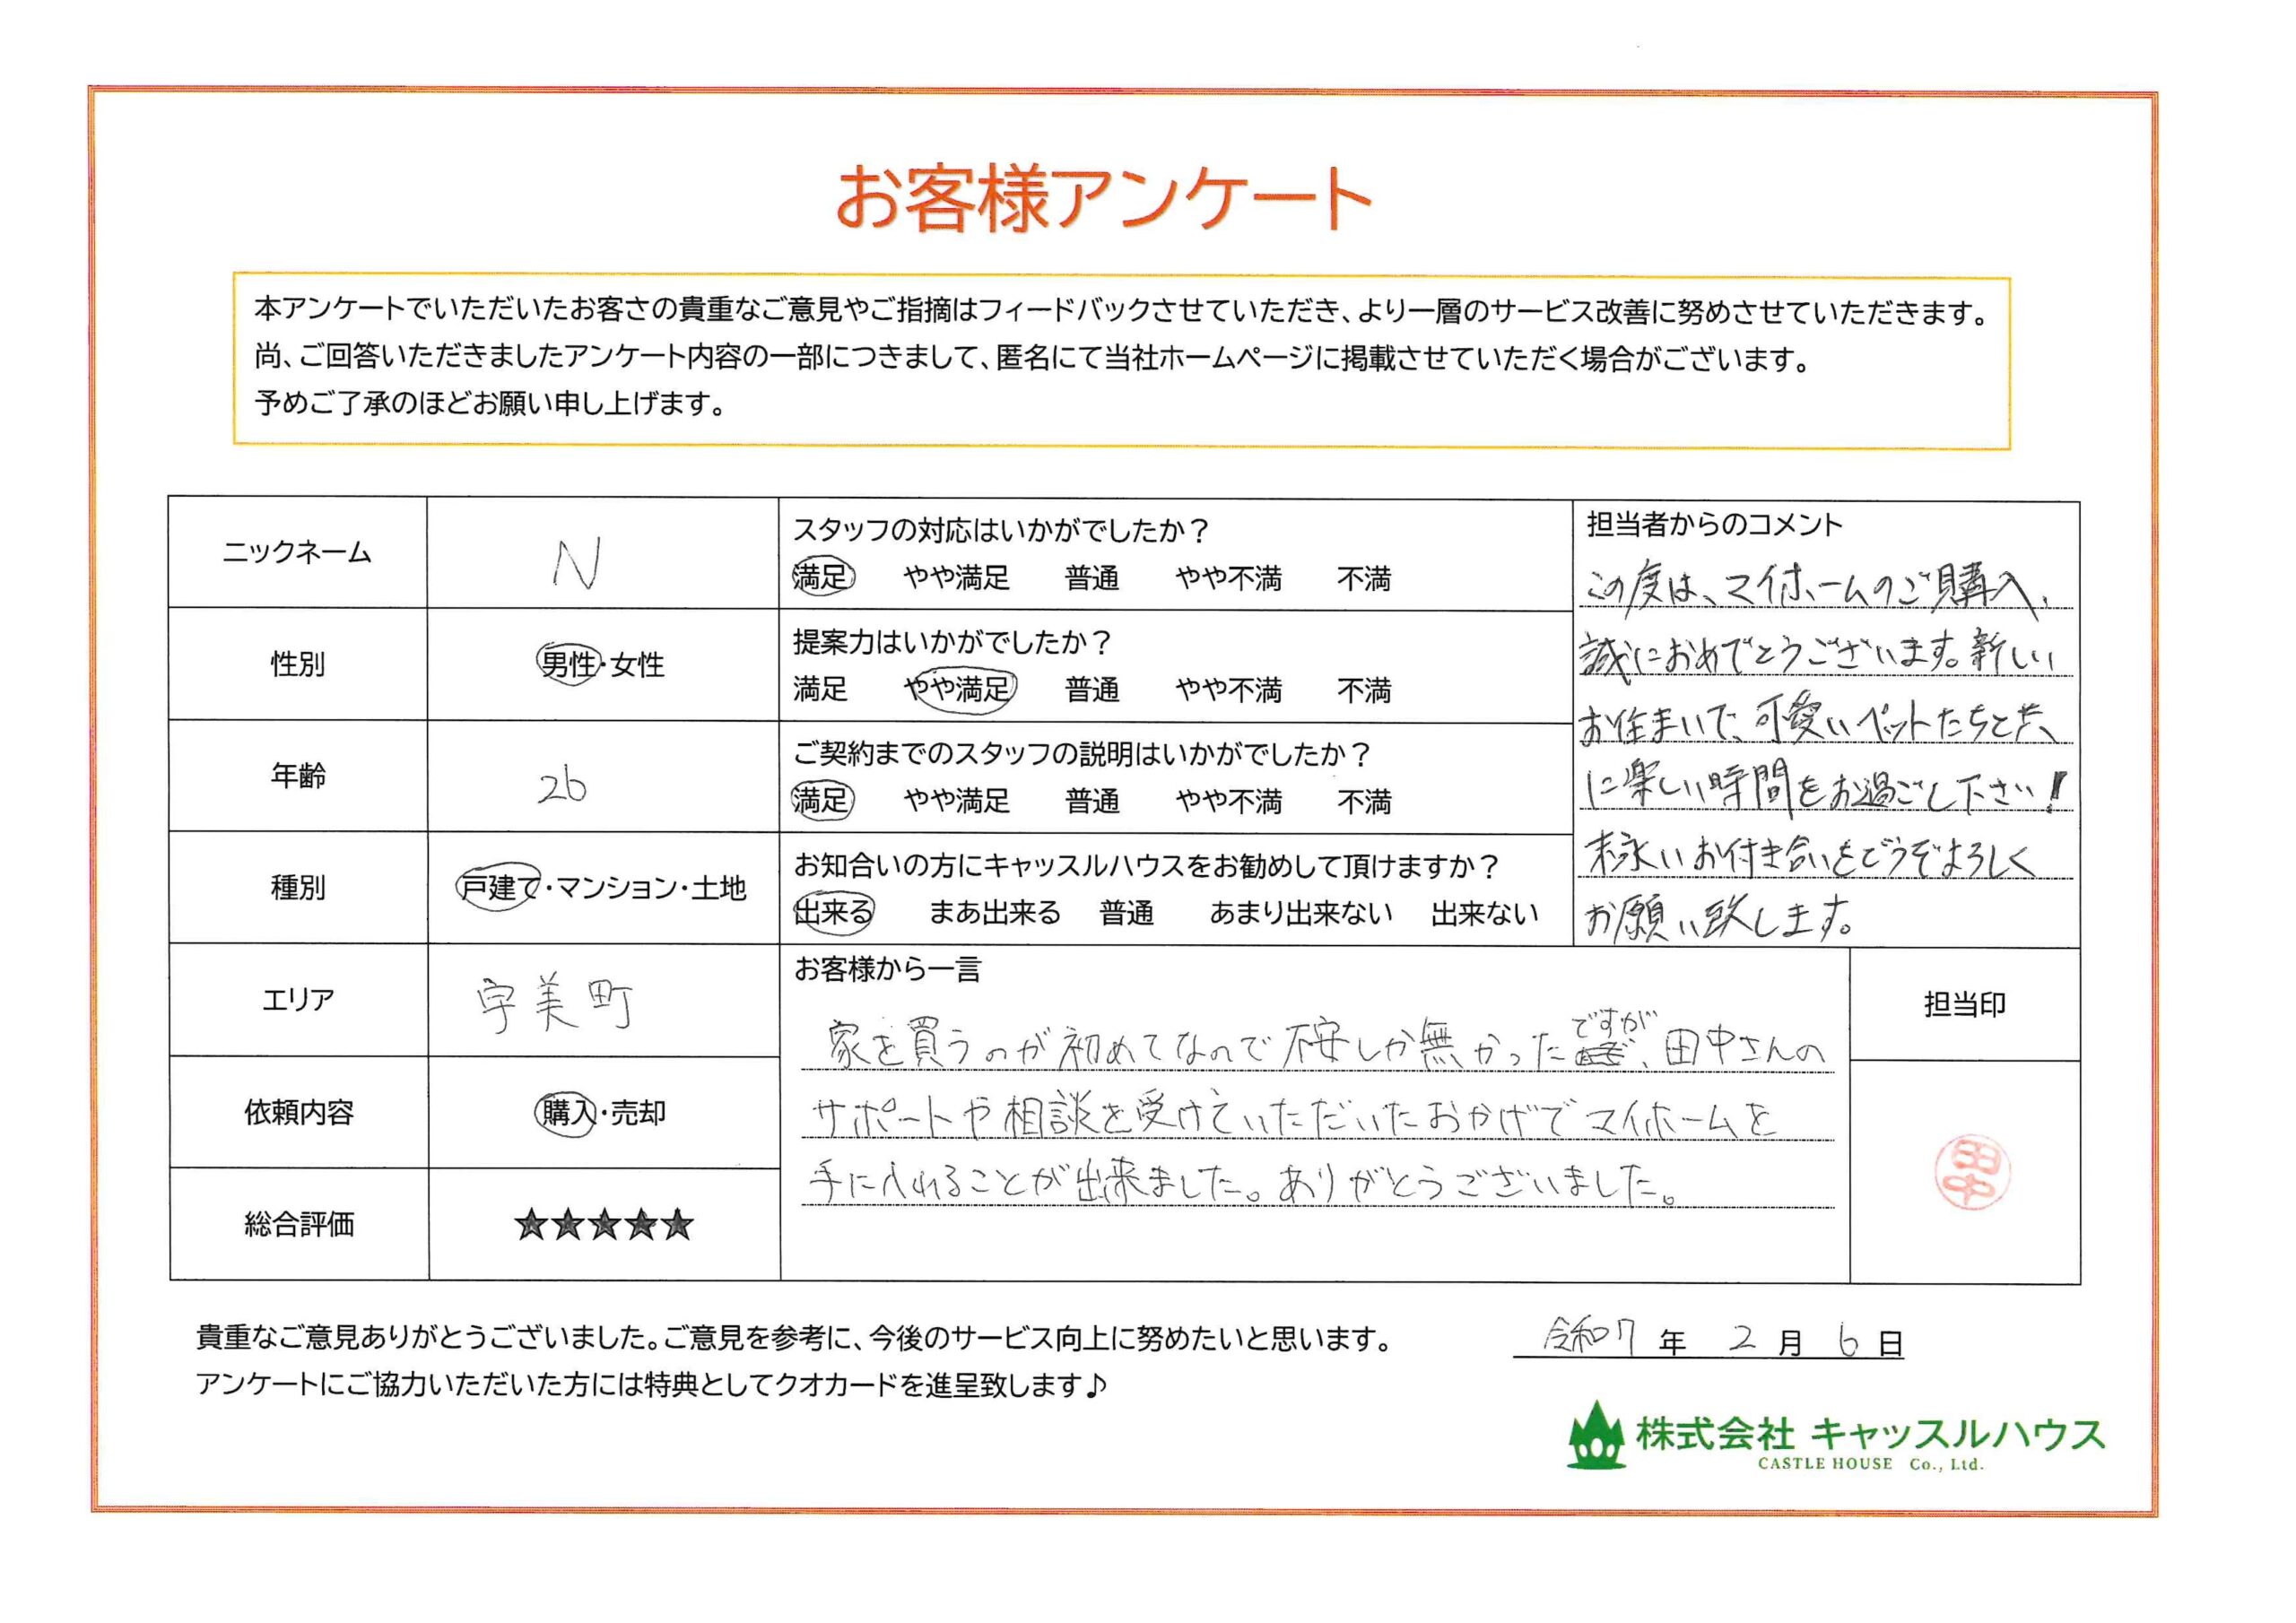 お客様アンケート
本アンケートでいただいたお客さの貴重なご意見やご指摘はフィードバックさせていただき、より一層のサービス改善に努めさせていただきます。
尚、ご回答いただきましたアンケート内容の一部につきまして、匿名にて当社ホームページに掲載させていただく場合がございます。
予めご了承のほどお願い申し上げます。
ニックネーム
N
性別
男性・女性
年齢
26
種別
戸建て・マンション・土地
エリア
宇美町
依頼内容
購入・売却
総合評価
★★★★★
スタッフの対応はいかがでしたか？
満足 やや満足 普通 やや不満 不満
提案力はいかがでしたか？
満足 やや満足 普通 やや不満 不満
ご契約までのスタッフの説明はいかがでしたか？
満足 やや満足 普通 やや不満 不満
お知合いの方にキャッスルハウスをお勧めして頂けますか？
出来る まあ出来る 普通 あまり出来ない 出来ない
担当者からのコメント
この度は、マイホームのご購入、
誠におめでとうございます。新しい
お住まいで、可愛いペットたちと共
に楽しい時間をお過ごし下さい！
末永いお付き合いをどうぞよろしく
お願い致します。
お客様から一言
家を買うのが初めてなので不安しか無かったですが、田中さんの
サポートや相談を受けていただいたおかげでマイホームを
手に入れることが出来ました。ありがとうございました。
担当印
田中
貴重なご意見ありがとうございました。ご意見を参考に、今後のサービス向上に努めたいと思います。
アンケートにご協力いただいた方には特典としてクオカードを進呈致します♪
令和7年 2月 6日
株式会社 キャッスルハウス
CASTLE HOUSE Co., Ltd.